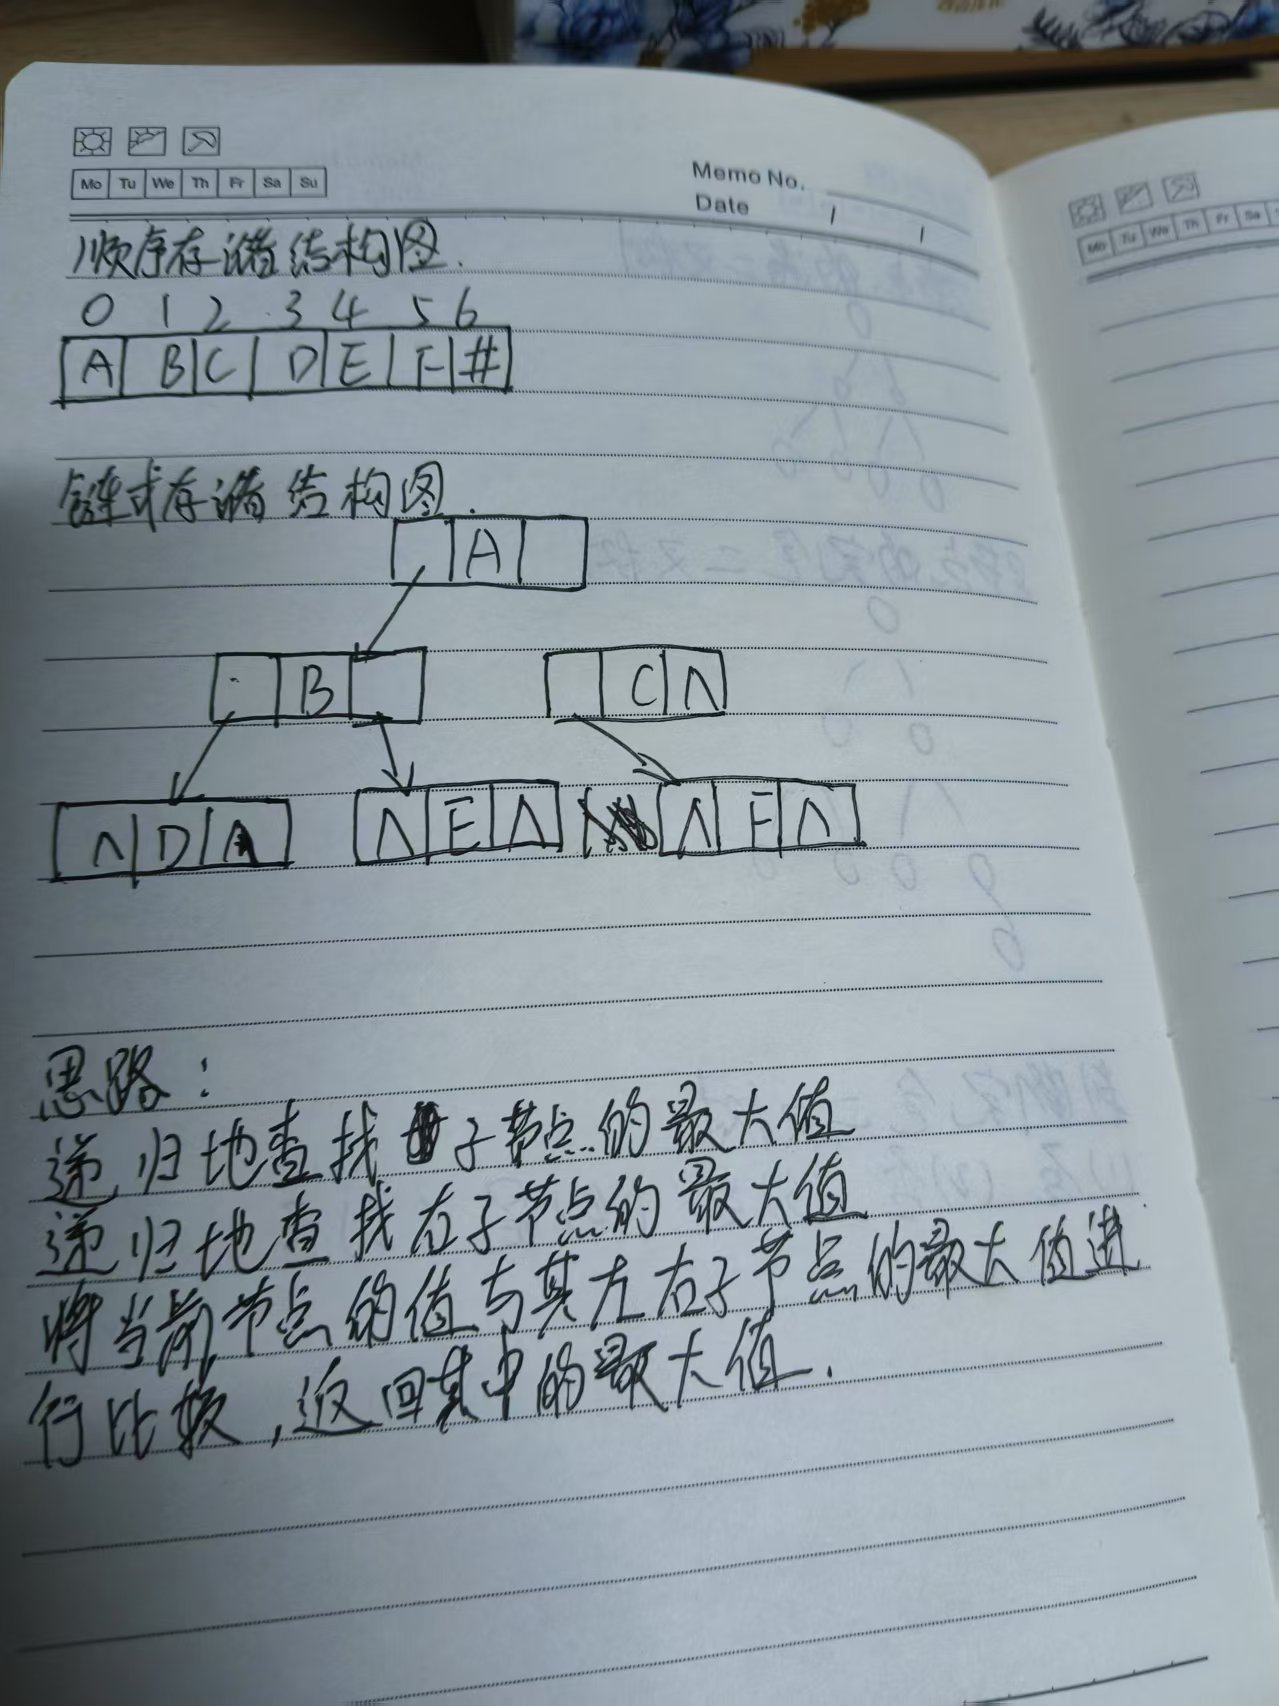 Mo Tu We Th Fr Sa Su
Memo No.
Date / /
顺序存储结构图.
0 1 2 3 4 5 6
A B C D E F #
链式存储结构图.
A
B
C Λ
Λ D Λ
Λ E Λ
Λ F Λ
思路:
递归地查找 子节点的最大值
递归地查找右子节点的最大值
将当前节点的值与其左右子节点的最大值进
行比较,返回其中的最大值.
Mo Tu We Th Fr Sa